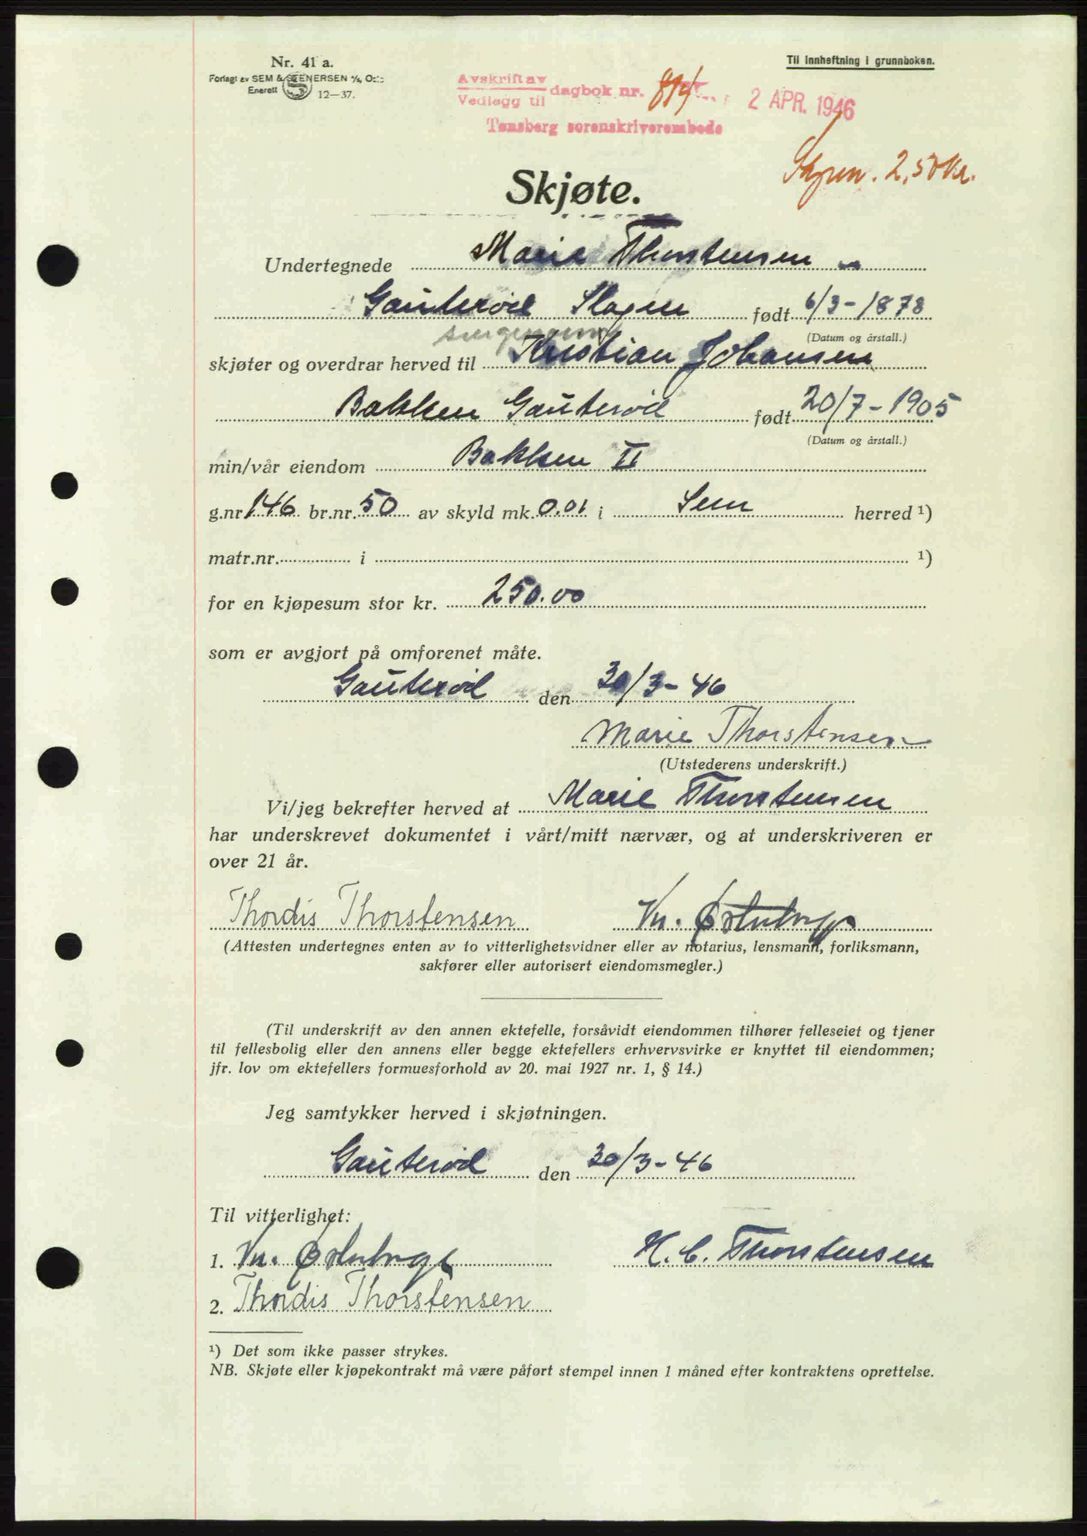 Nr. 41 a.
Forlagt av SEM & STENERSEN A/S, Oslo
Enerett 12—37.
Til innheftning i grunnboken.
Avskrift av
Vedlegg til dagbok nr. 814 2 APR. 1946
Tønsberg sorenskriverembede
2,50 kr.
Skjøte.
Undertegnede Marie Thorstensen
Gauterød Slagen født 6/3-1878
(Datum og årstall.)
skjøter og overdrar herved til Kristian Johansen
Bakken Gauterød født 20/7-1905
(Datum og årstall.)
min/vår eiendom Bakken II
g.nr. 146 br.nr. 50 av skyld mk. 0.01 i Sem herred ¹)
matr.nr. i ¹)
for en kjøpesum stor kr. 250.00
som er avgjort på omforenet måte.
Gauterød den 30/3-46
Marie Thorstensen
(Utstederens underskrift.)
Vi/jeg bekrefter herved at Marie Thorstensen
har underskrevet dokumentet i vårt/mitt nærvær, og at underskriveren er
over 21 år.
Thordis Thorstensen
(Attesten undertegnes enten av to vitterlighetsvidner eller av notarius, lensmann, forliksmann,
sakfører eller autorisert eiendomsmegler.)
(Til underskrift av den annen ektefelle, forsåvidt eiendommen tilhører felleseiet og tjener
til fellesbolig eller den annens eller begge ektefellers erhvervsvirke er knyttet til eiendommen;
jfr. lov om ektefellers formuesforhold av 20. mai 1927 nr. 1, § 14.)
Jeg samtykker herved i skjøtningen.
Gauterød den 30/3-46
Til vitterlighet:
1. H. C. Thorstensen
2. Thordis Thorstensen
¹) Det som ikke passer strykes.
NB. Skjøte eller kjøpekontrakt må være påført stempel innen 1 måned efter kontraktens oprettelse.